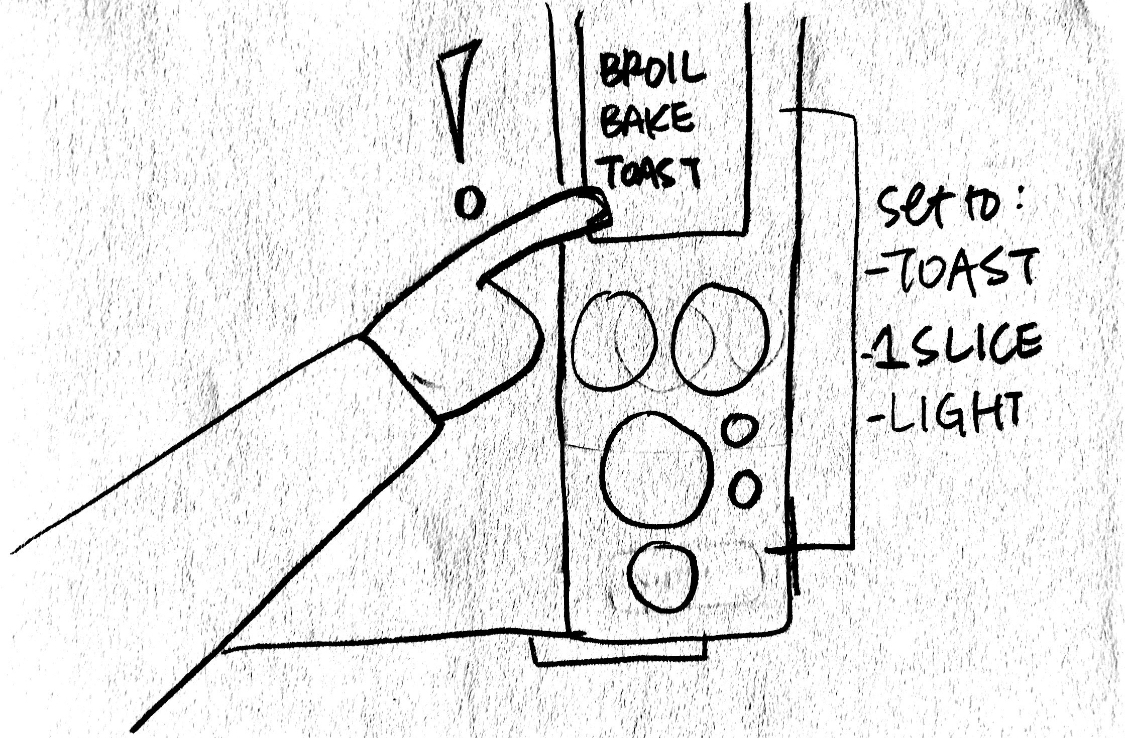 BROIL
BAKE
TOAST
set to:
-TOAST
-1 SLICE
-LIGHT